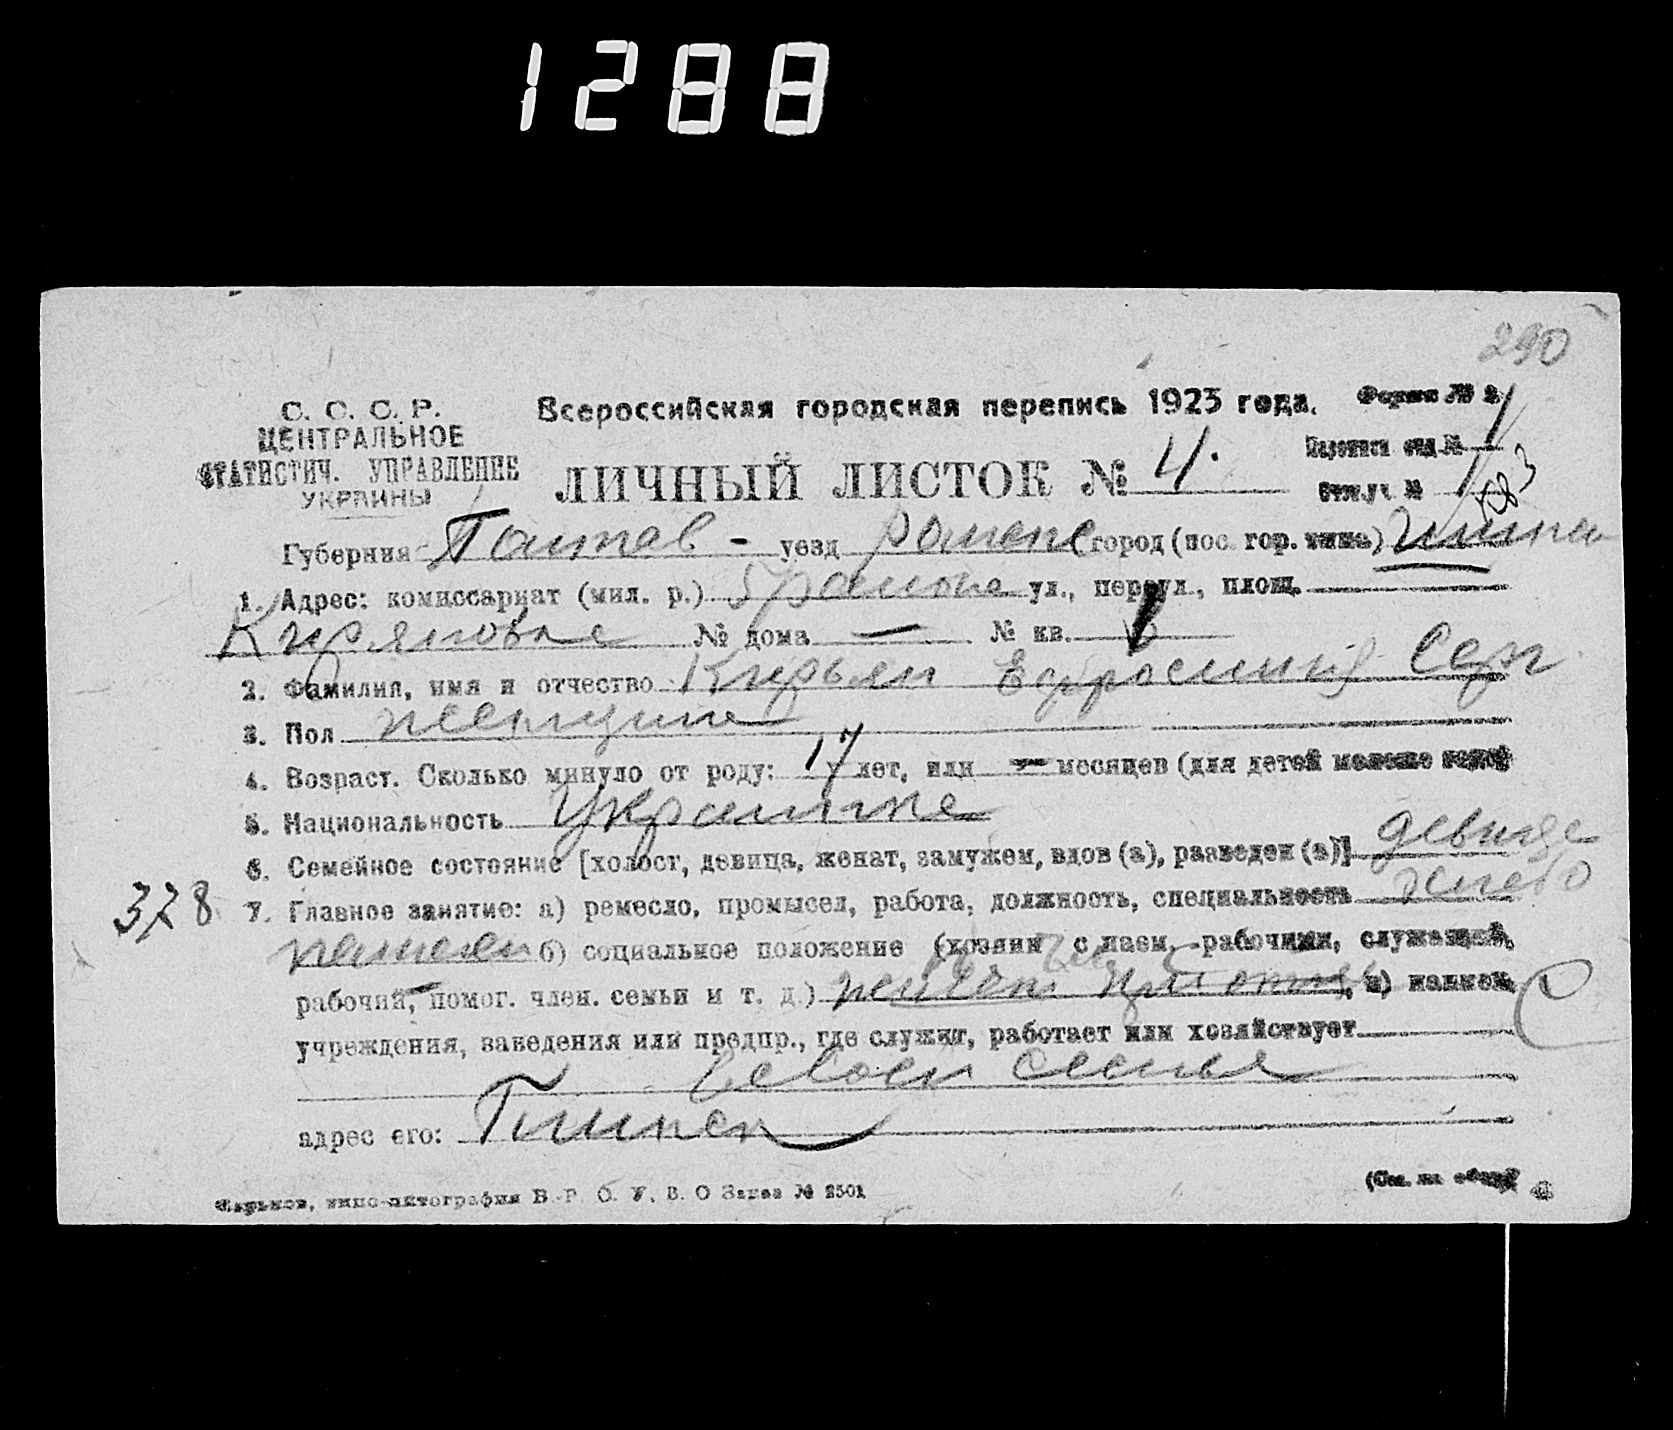 1288
290
С. С. С. Р.
ЦЕНТРАЛЬНОЕ
СТАТИСТИЧ. УПРАВЛЕНИЕ
УКРАИНЫ
Всероссийская городская перепись 1923 года.
Форма № 2
ЛИЧНЫЙ ЛИСТОК № 4.
№ 1
№ 1
Губерния Полтав - уезд Роменск город (пос. гор. типа)
1. Адрес: комиссариат (мил. р.) ул., переул., площ.
№ дома — № кв.
2. Фамилия, имя и отчество Кирьян Ефросиния Серг
3. Пол женщина
4. Возраст. Сколько минуло от роду: 17 лет, или — месяцев (для детей
5. Национальность Украинка
6. Семейное состояние [холост, девица, женат, замужем, вдов (а), разведен (а)] девица
378
7. Главное занятие: а) ремесло, промысел, работа, должность, специальность хлебо
пашец б) социальное положение (хозяин с наем. рабочими, служащий,
рабочий, помог. член. семьи и т. д.) помогает при отце, в) наимен.
учреждения, заведения или предпр., где служит, работает или хозяйствует
в своей семье
адрес его:
Харьков, типо-литография В. Р. О. У. В. О Заказ № 2501
(См. на обор.)